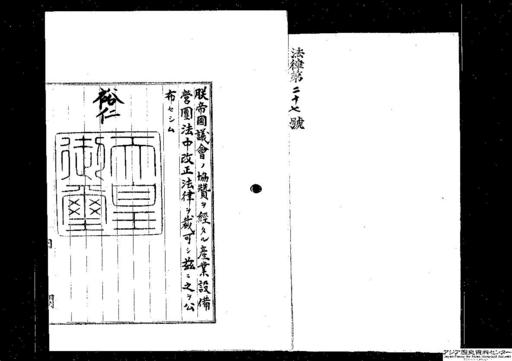 法律第二十七號
朕帝國議會ノ協贊ヲ經タル産業設備
營團法中改正法律ヲ裁可シ茲ニ之ヲ公
布セシム
裕仁
天皇
御璽
アジア歴史資料センター